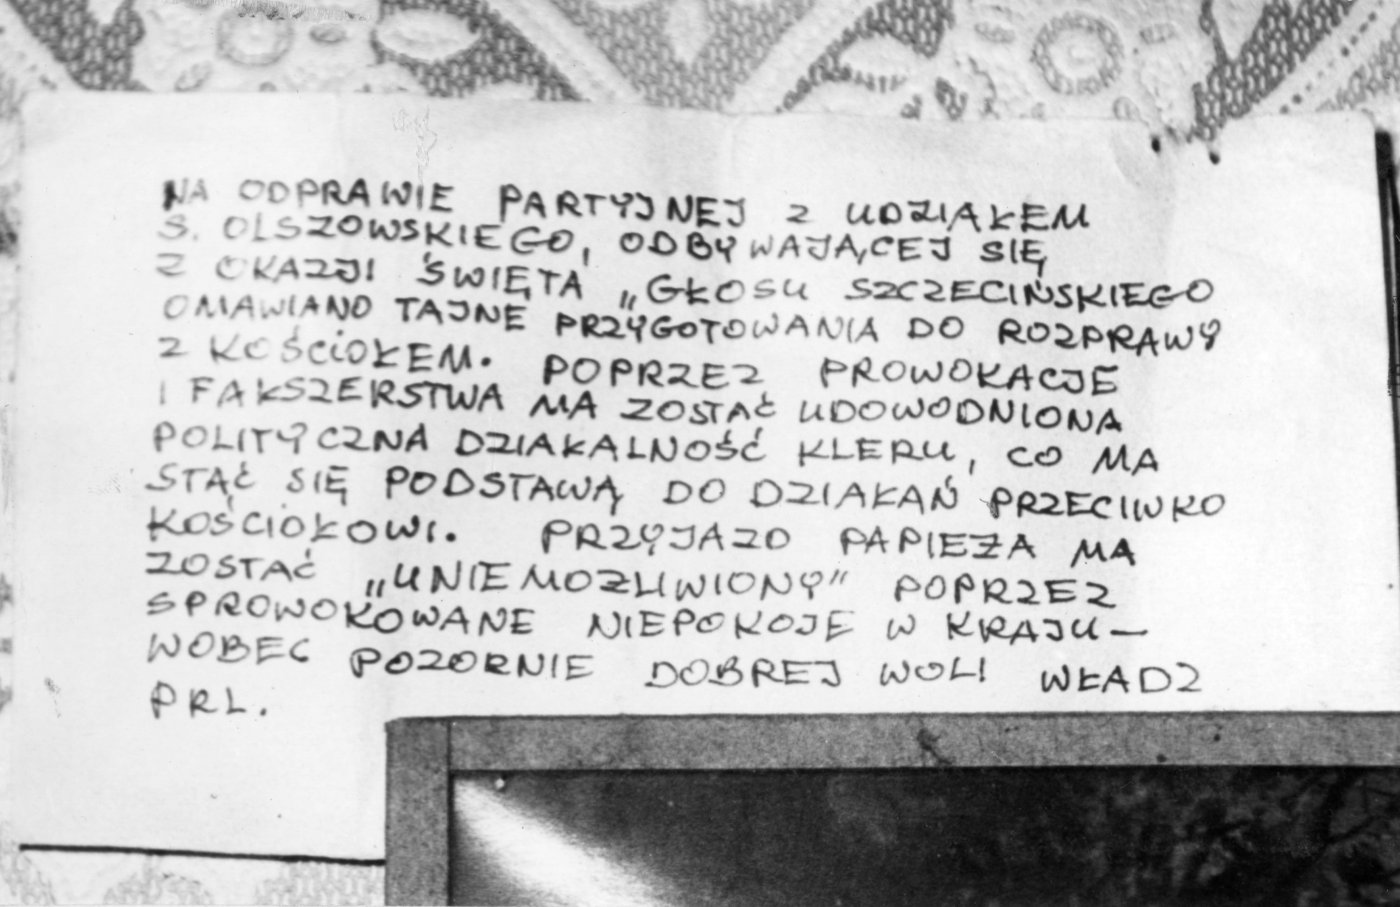 NA ODPRAWIE PARTYJNEJ Z UDZIAŁEM
S. OLSZOWSKIEGO, ODBYWAJĄCEJ SIĘ
Z OKAZJI ŚWIĘTA „GŁOSU SZCZECIŃSKIEGO
OMAWIANO TAJNE PRZYGOTOWANIA DO ROZPRAWY
Z KOŚCIOŁEM. POPRZEZ PROWOKACJE
I FAŁSZERSTWA MA ZOSTAĆ UDOWODNIONA
POLITYCZNA DZIAŁALNOŚĆ KLERU, CO MA
STAĆ SIĘ PODSTAWĄ DO DZIAŁAŃ PRZECIWKO
KOŚCIOŁOWI. PRZYJAZD PAPIEŻA MA
ZOSTAĆ „UNIEMOŻLIWIONY” POPRZEZ
SPROWOKOWANE NIEPOKOJE W KRAJU —
WOBEC POZORNIE DOBREJ WOLI WŁADZ
PRL.